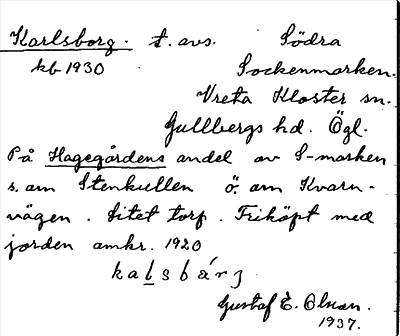 Karlsborg. t. avs. Södra
kb 1930 Sockenmarken.
Vreta Kloster sn.
Gullbergs hd. Ögl.
På Hagegårdens andel av S-marken
s. om Stenkullen ö. om Kvarn-
vägen. Litet torp. Friköpt med
jorden omkr. 1920
kalsbárȝ
Gustaf E. Olson.
1937.